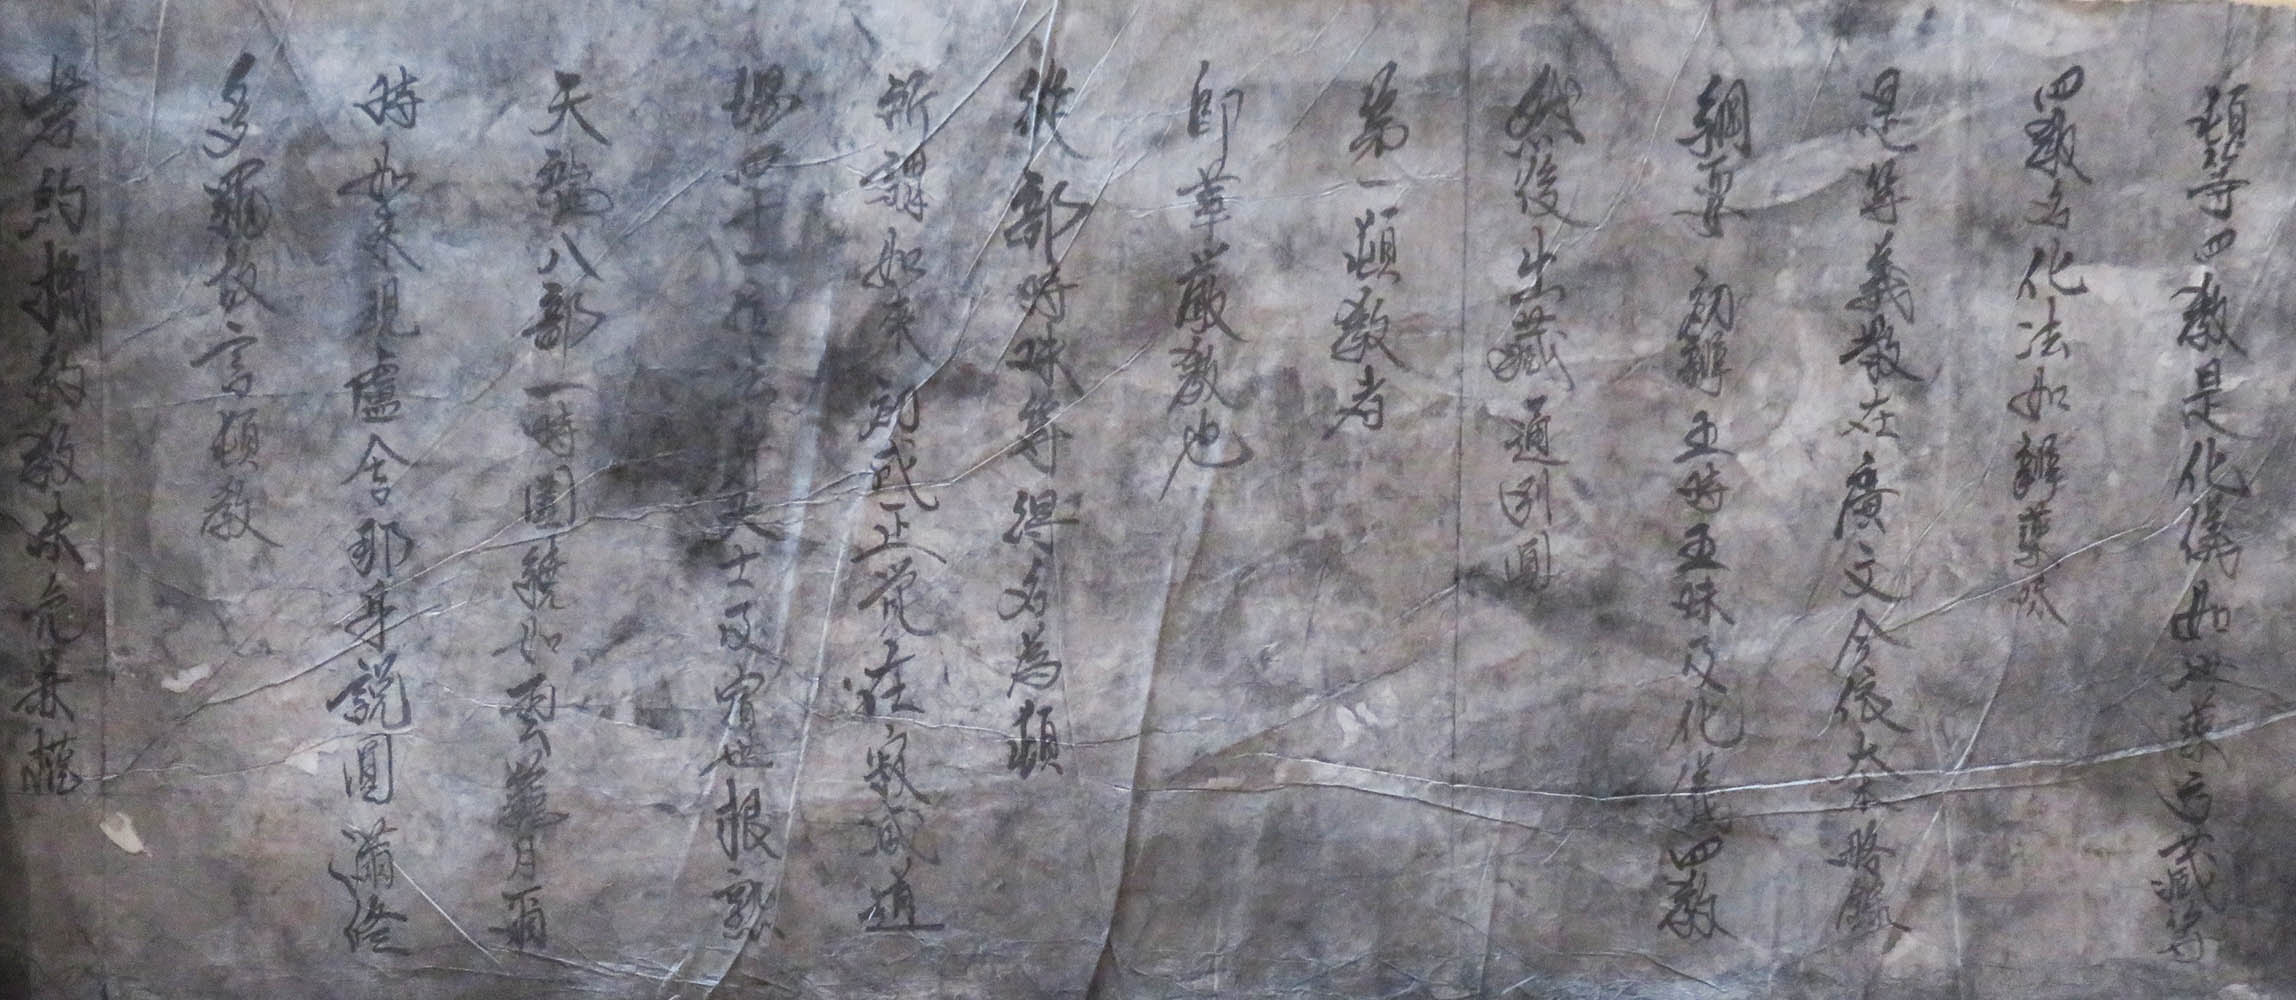 頓等四教是化儀如世藥方藏等
四教名化法如辨藥味
是等義散在廣文今依大本略錄
綱要 初辨五時五味及化儀四教
然後出藏通別圓
第一頓教者
即華嚴教也
從部時味等得名為頓
所謂如來初成正覺在寂滅道
場四十一位法身大士及宿世根熟
天龍八部一時圍繞如雲籠月爾
時如來現盧舍那身說圓滿修
多羅故言頓教
若約機約教未免兼權